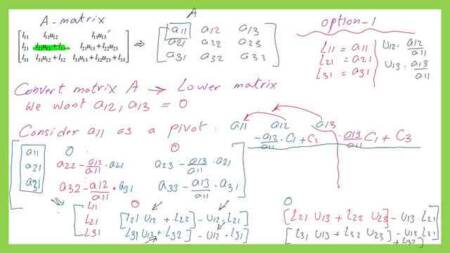 A-matrix
A
option-1
l11 l11u12 l11u13
l21 l21u12 + l22 l21u13 + l22u23
l31 l31u12 + l32 l31u13 + l32u23 + l33
⇒
a11 a12 a13
a21 a22 a23
a31 a32 a33
l11 = a11
l21 = a21
l31 = a31
U12 = a12/a11
U13 = a13/a11
Convert matrix A → Lower matrix
we want a12, a13 = 0
Consider a11 as a pivot
a11 a12 a13
-a12/a11 C1 + C2 -a13/a11 C1 + C3
a11 0 0
a21 a22 - a12/a11 . a21 a23 - a13/a11 . a21
a31 a32 - a12/a11 . a31 a33 - a13/a11 . a31
l11 0 0
l21 [l21 U12 + l22] - U12 l21] [l21 U13 + l22 U23] - U13 l21]
l31 l31 U12 + l32] - U12 l31] [l31 U13 + l32 U23 - U13 l31
+ l33